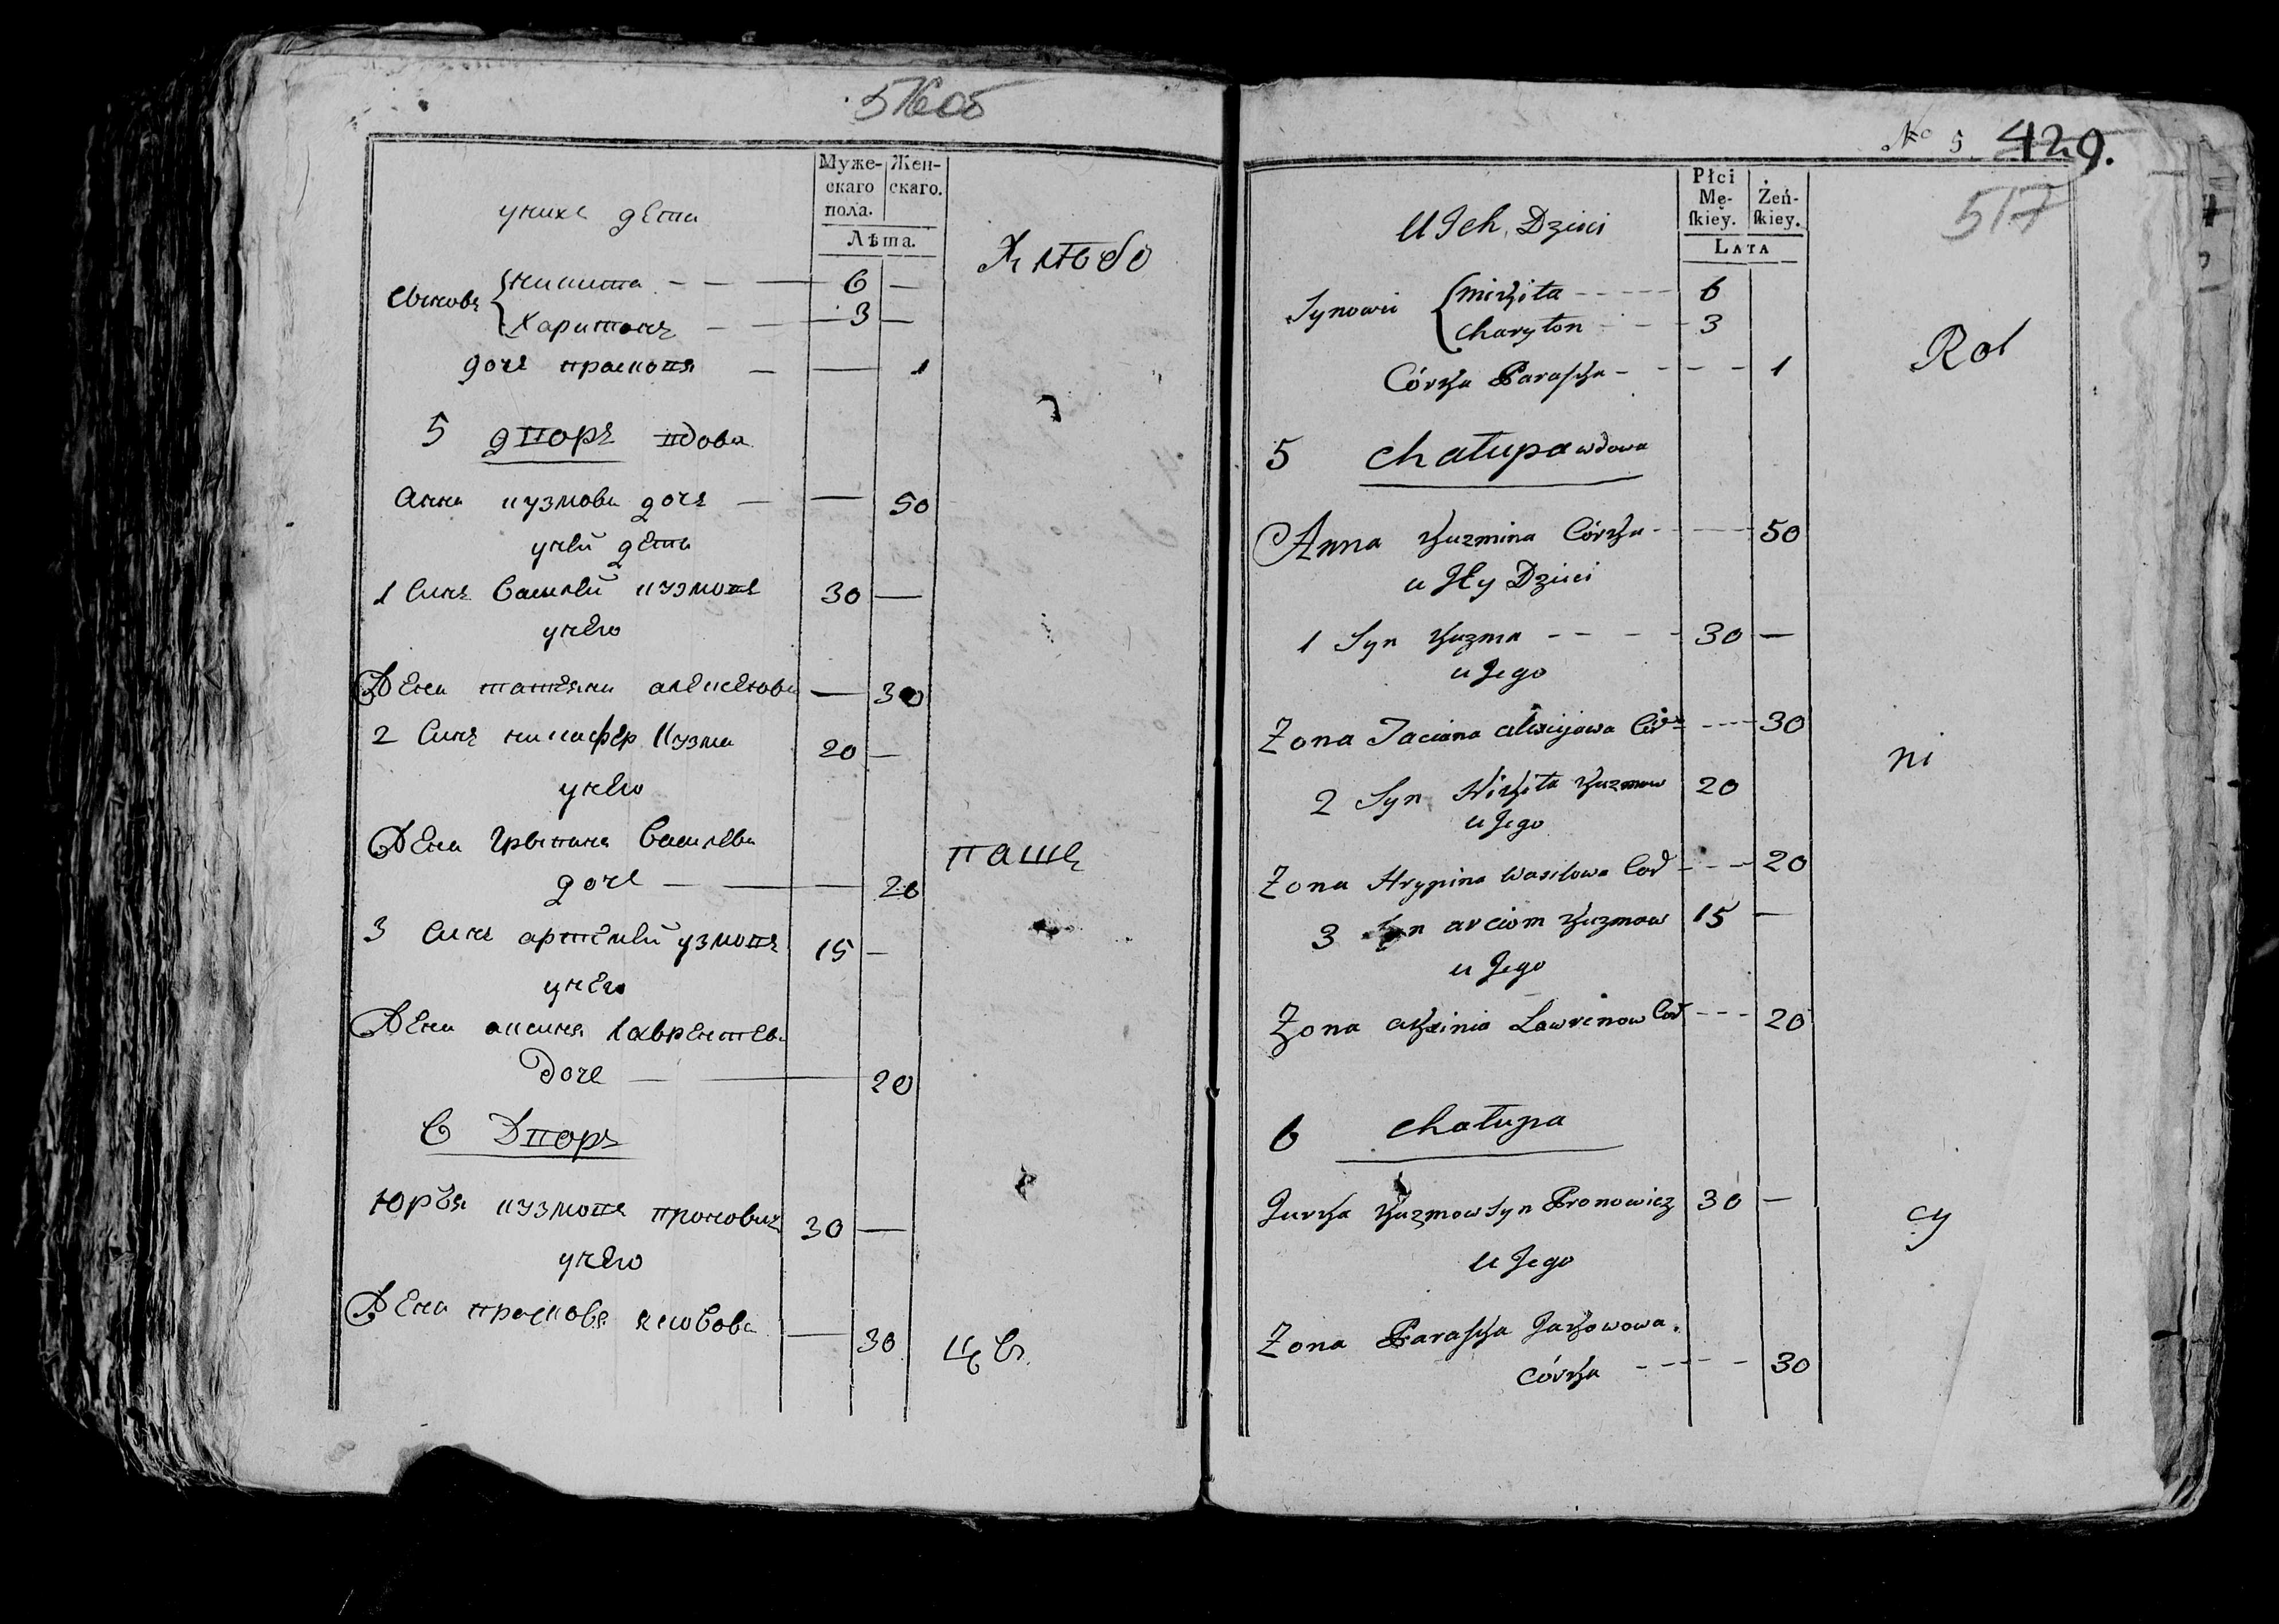 516об
Муже-
скаго
пола.
Жен-
скаго.
Лѣта.
у нихъ дети
Хлѣбо
Сыновя
Никита - - — 6 —
Харитонъ - — 3 —
дочь праскопя — — 1
5 дворъ вдова
Анна кузмова дочь — — 50
у ней дети
1 Синъ Василей кузмовъ 30 —
у него
Жена татяна алексеюва — 30
2 Синъ никифер Кузма 20 —
у него
Жена Грыпина Василева
дочь — — — 20
3 Синъ артемей узмовъ 15 —
у него
Жена аксиня лаврентева
дочь — — 20
пашц
6 Дворъ
Юрья кузмовъ пронович 30 —
у него
Жена прасковя яковова — 30
цы
No 5 429.
517
Płci
Mę-
ſkiey.
Żeń-
ſkiey.
LATA
U Ich Dzieci
Synowie
Mikita - - - - 6
Charyton - - - 3
Córka Paraska - - - - 1
Rol
5 Chałupa wdowa
Anna Kuzmina Córka - - - 50
u Jey Dzieci
1 Syn Kuzma - - - - 30 —
u Jego
Zona Taciana alexiejowa Cór - - - 30
2 Syn Nikita Kuzmow 20
u Jego
ni
Zona Hrypina Wasilowa Cor - - - 20
3 Syn arciom Kuzmow 15 —
u Jego
Zona axinia Lawrenow Cor - - - 20
6 Chałupa
Jurka Kuzmow Syn Pronowicz 30 —
u Jego
cy
Zona Paraska Jakowowa
Córka - - - - 30